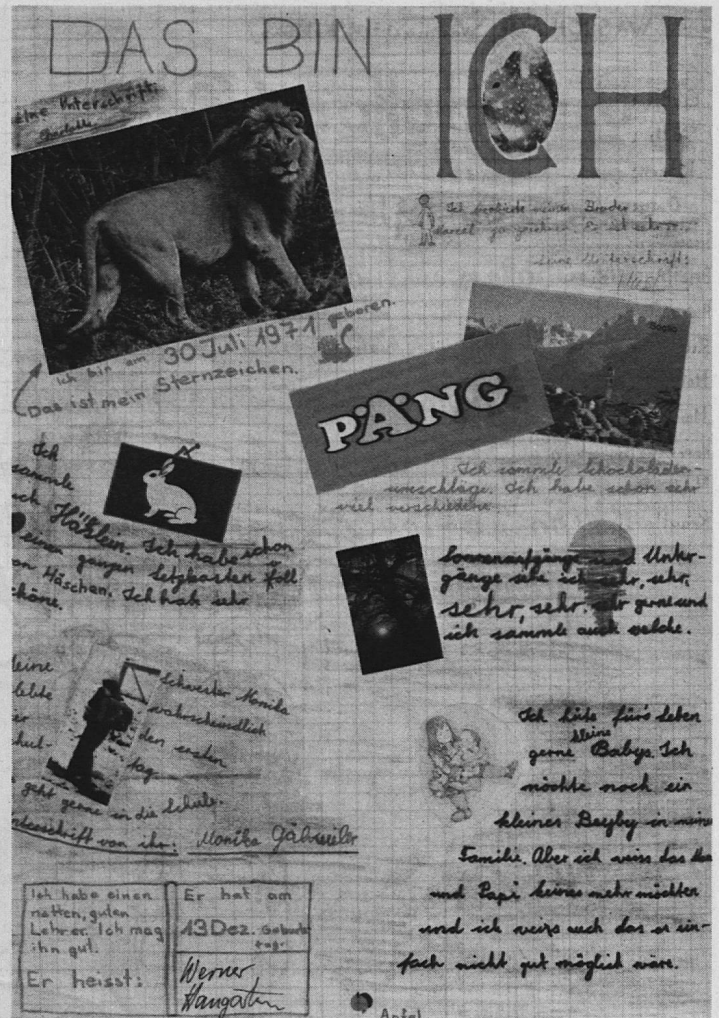 DAS BIN ICH
eine Unterschrift:
Ich
Bruder
zu zeichnen. Er ist sehr
seine Unterschrift:
Ich bin am 30 Juli 1971 geboren.
Das ist mein Sternzeichen.
PÄNG
Ich sammle Schockoladen-
umschläge. Ich habe schon sehr
viel verschiedene
Ich
sammle
Häslein. Ich habe schon
einen ganzen Setzkasten foll
Häschen. Ich hab sehr
schöne.
Sonnenaufgänge und Unter-
gänge sehe ich sehr, sehr,
sehr, sehr, sehr gerne und
ich sammle auch welche.
Schwester Monika
lebte wahrscheindlich
den ersten
tag.
geht gerne in die Schule.
Unterschrift von ihr: Monika Gähwiler
Ich hüte fürs leben
gerne kleine Babys. Ich
möchte noch ein
kleines Beyby in
Familie. Aber ich weiss das
und Papi keines mehr möchten
und ich weiss auch das es ein-
fach nicht gut möglich wäre.
Ich habe einen
netten, guten
Lehrer. Ich mag
ihn gut.
Er heisst:
Er hat am
13 Dez. Geburts
tag.
Werner
Apfel